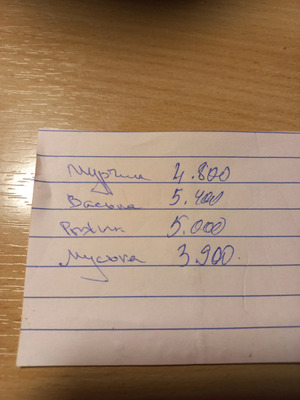 Мурчик 4.800
Васька 5.400
Рыжик 5.000
Муська 3.900.